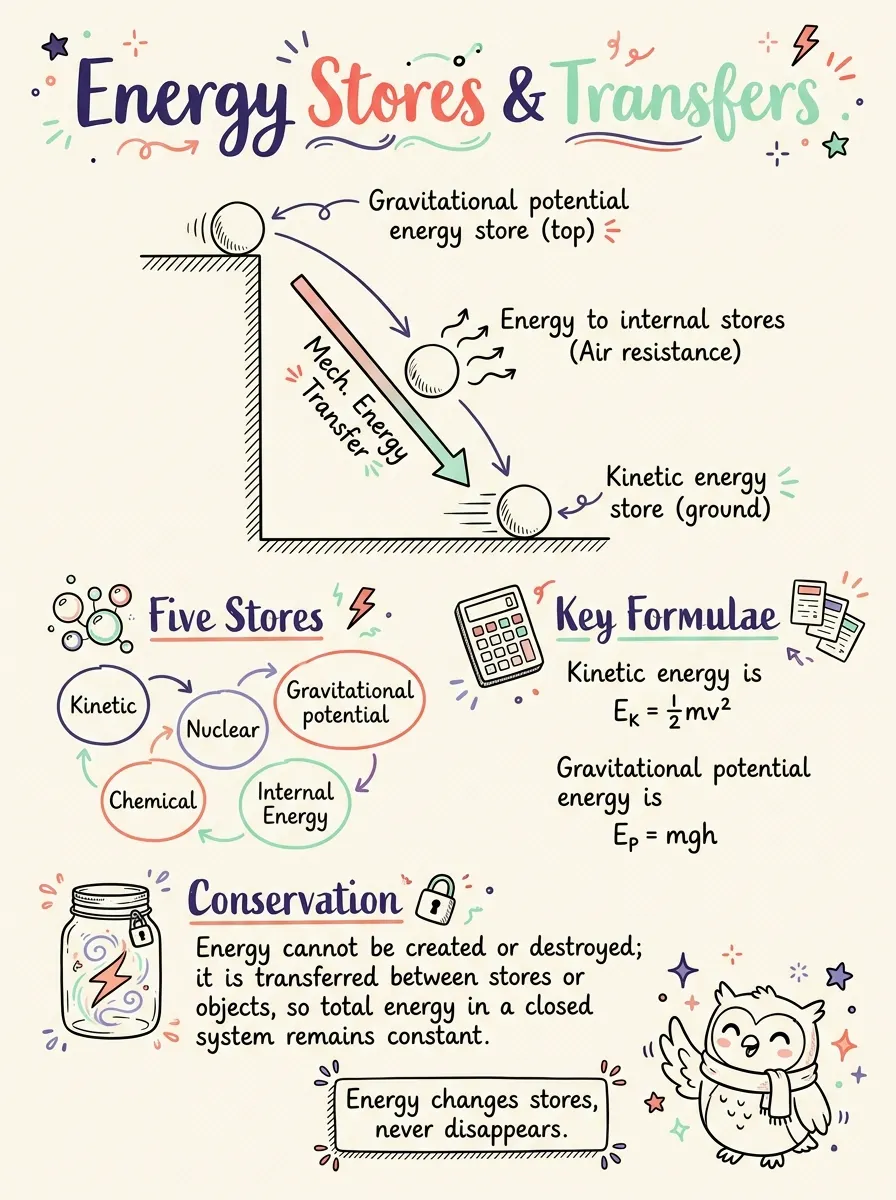 Energy Stores & Transfers
Gravitational potential
energy store (top)
Energy to internal stores
(Air resistance)
Mech. Energy
Transfer
Kinetic energy
store (ground)
Five Stores
Kinetic
Nuclear
Gravitational
potential
Chemical
Internal
Energy
Key Formulae
Kinetic energy is
Eₖ = ½mv²
Gravitational potential
energy is
Eₚ = mgh
Conservation
Energy cannot be created or destroyed;
it is transferred between stores or
objects, so total energy in a closed
system remains constant.
Energy changes stores,
never disappears.